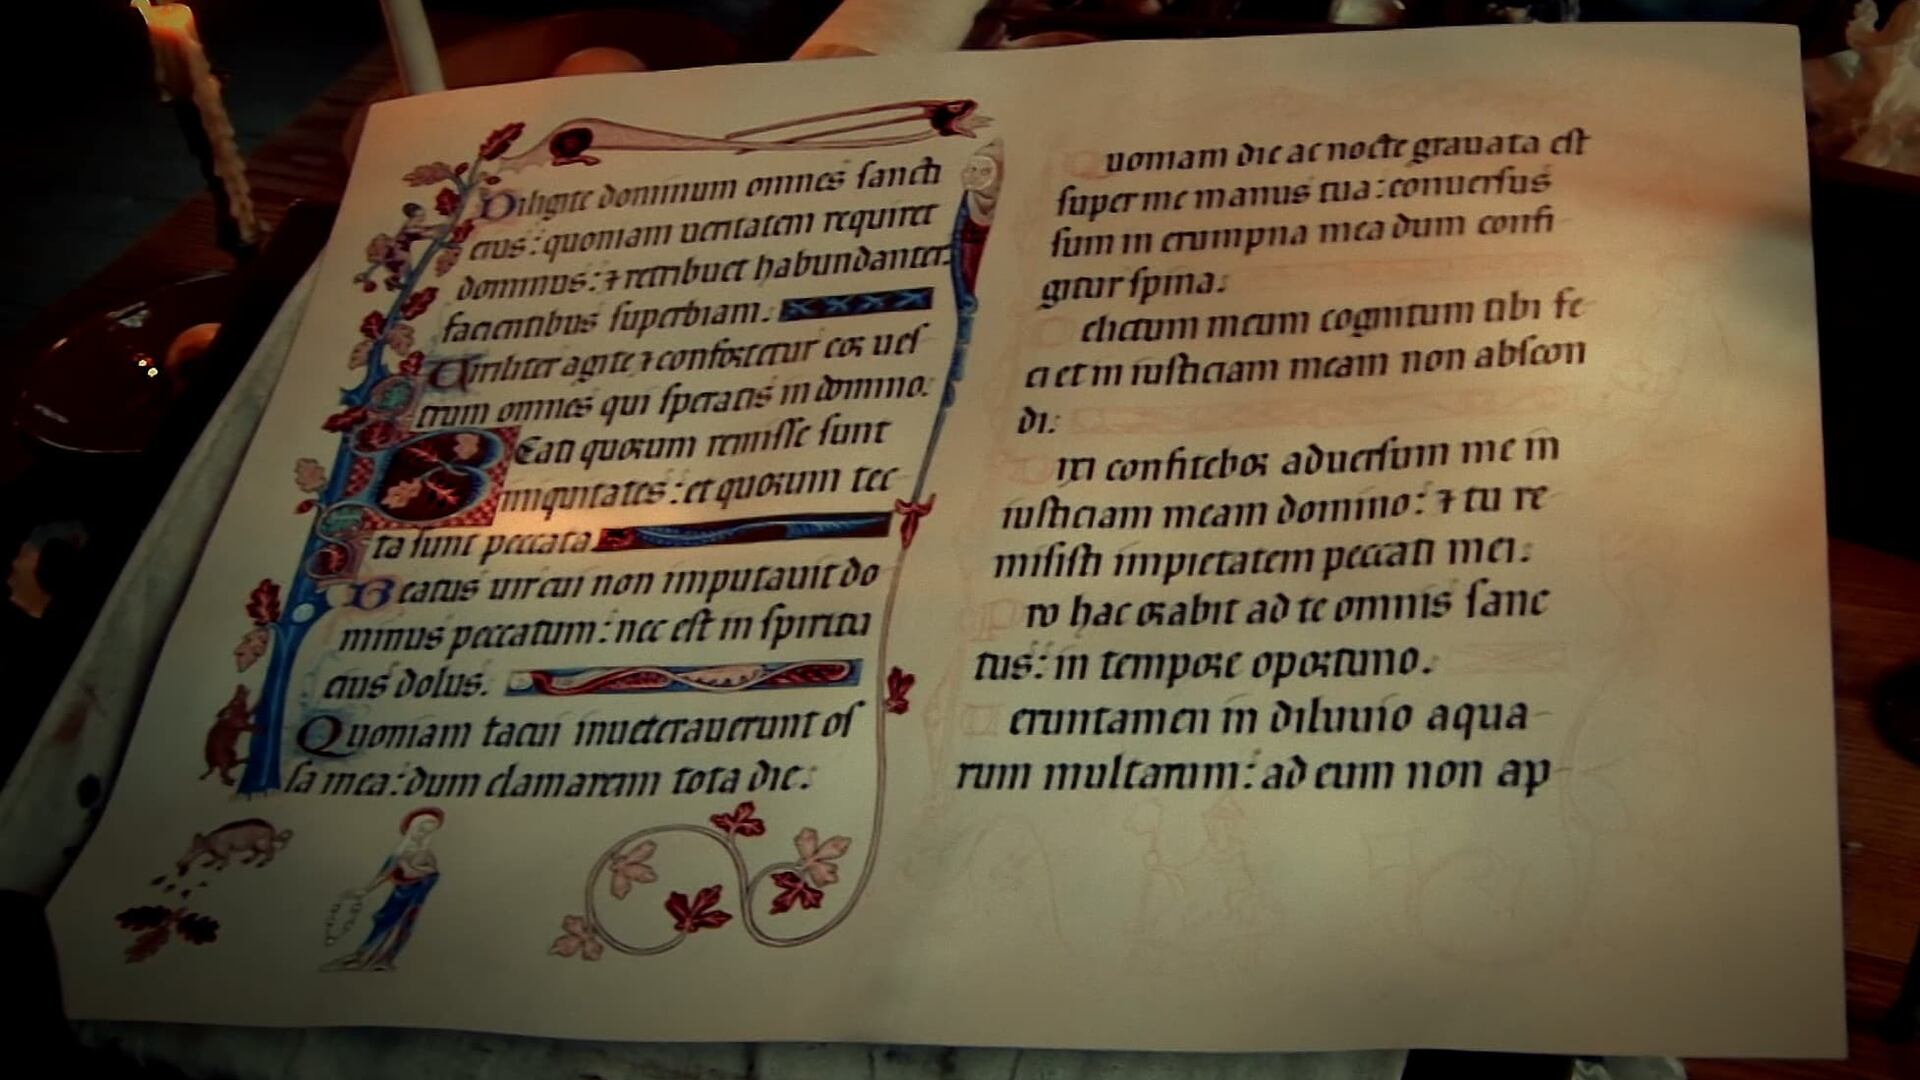 Diligite dominum omnes sancti
eius: quoniam ueritatem requiret
dominus: ⁊ retribuet habundanter
facientibus superbiam.
Uiriliter agite ⁊ confortetur cor ues
trum omnes qui speratis in domino.
Beati quorum remisse sunt
iniquitates: et quorum tec
ta sunt peccata
Beatus uir cui non imputauit do
minus peccatum: nec est in spiritu
eius dolus.
Quoniam tacui inueterauerunt os
sa mea: dum clamarem tota die:
Quoniam die ac nocte grauata est
super me manus tua: conuersus
sum in erumpna mea dum confi
gitur spina:
Delictum meum cognitum tibi fe
ci et in iusticiam meam non abscon
di:
Dixi confitebor aduersum me in
iusticiam meam domino: ⁊ tu re
misisti impietatem peccati mei:
Pro hac orabit ad te omnis sanc
tus: in tempore oportuno.
Ueruntamen in diluuio aqua
rum multarum: ad eum non ap